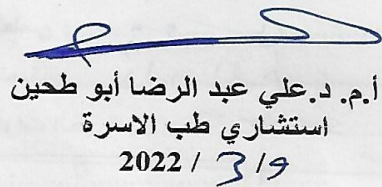 أ.م. د.علي عبد الرضا أبو طحين
استشاري طب الاسرة
2022 / 3 / 9